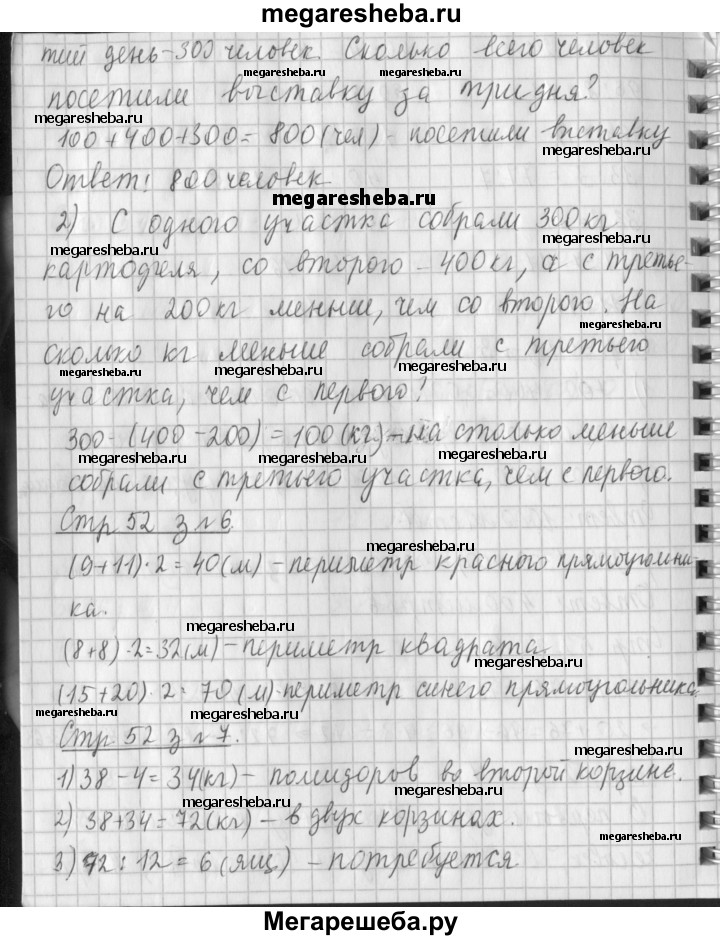 megaresheba.ru
тий день - 300 человек. Сколько всего человек
megaresheba.ru megaresheba.ru megaresheba.ru
посетили выставку за три дня?
megaresheba.ru
100 + 400 + 300 = 800 (чел) - посетили выставку
megaresheba.ru
Ответ: 800 человек
megaresheba.ru
2) С одного участка собрали 300 кг
megaresheba.ru megaresheba.ru
картофеля, со второго - 400 кг, а с третье-
го на 200 кг меньше, чем со второго. На
megaresheba.ru
сколько кг меньше собрали с третьего
megaresheba.ru megaresheba.ru
участка, чем с первого?
300 - (400 - 200) = 100 (кг) - на столько меньше
megaresheba.ru megaresheba.ru megaresheba.ru
собрали с третьего участка, чем с первого.
Стр 52 з №6.
megaresheba.ru
(9+11)·2 = 40 (м) - периметр красного прямоугольни-
ка.
megaresheba.ru
(8+8)·2=32(м) - периметр квадрата
megaresheba.ru
(15+20)·2= 70 (м) - периметр синего прямоугольника
megaresheba.ru megaresheba.ru
Стр 52 з №7.
megaresheba.ru
1) 38 - 4 = 34(кг) - помидоров во второй корзине.
megaresheba.ru megaresheba.ru
2) 38+34 = 72(кг) - в двух корзинах.
megaresheba.ru
3) 72 : 12 = 6 (ящ) - потребуется.
Мегарешеба.ру